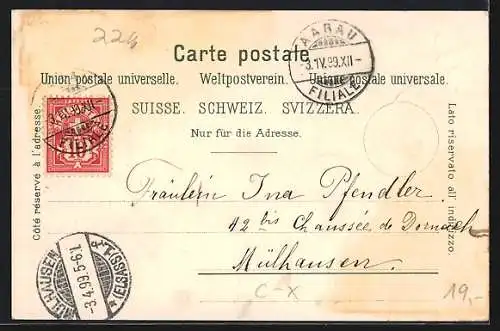 224
Carte postale.
AARAU
3.IV.99.XII-
FILIALE
Union postale universelle. Weltpostverein. Unione postale universale.
SUISSE. SCHWEIZ. SVIZZERA.
Nur für die Adresse.
AARAU
3.IV.99.XII-
FILIALE
Côté réservé à l'adresse.
Lato riservato all' indirizzo.
Fräulein Ina Pfendler
42 bis Chaussée de Dornach
Mülhausen.
MÜLHAUSEN (ELSASS)
3.4.99.5-6
C-X
19,-